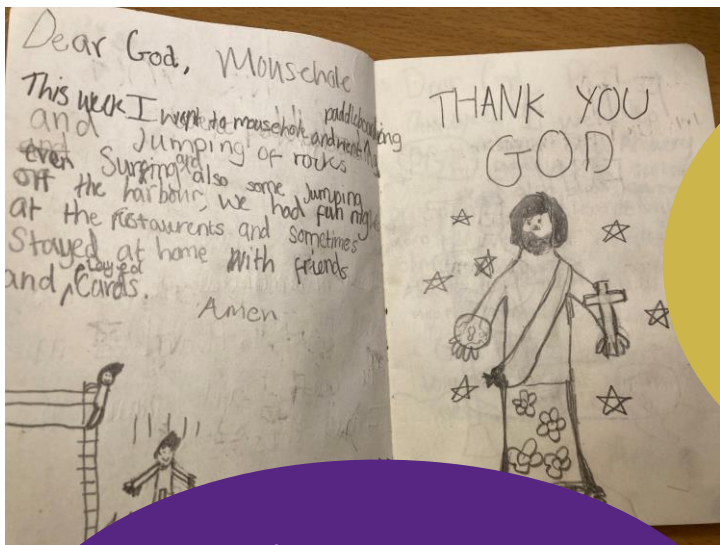 Dear God, Mousehole
This week I went to mousehole and went paddleboarding
and Jumping of rocks
even Surfing and also some Jumping
off the harbour, we had fun nights
at the restaurents and sometimes
Stayed at home with friends
and played Cards.
Amen
THANK YOU
GOD